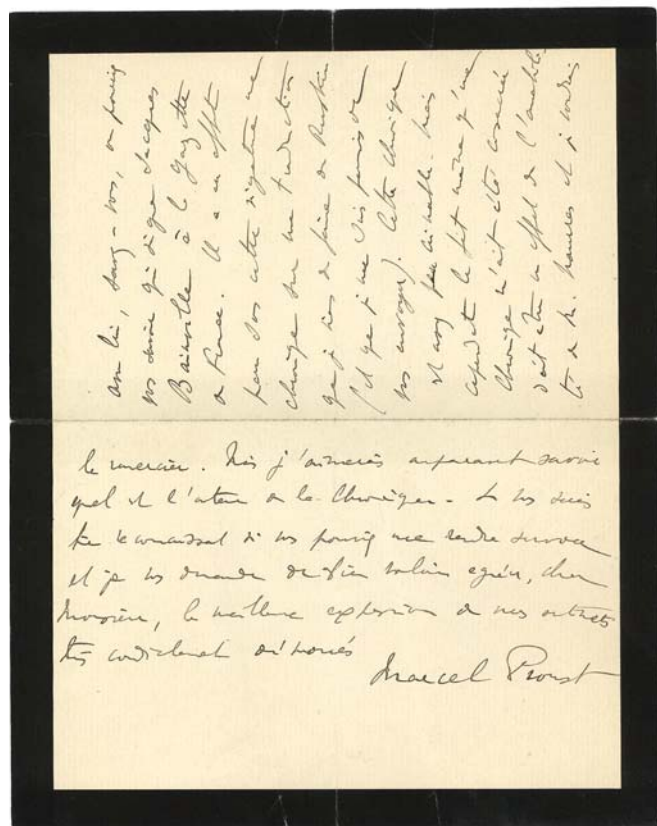 savez-vous, ou pouvez
vous savoir qui Jacques
Bainville à la Gazette
de France. Il a en effet
paru dans cette une
chronique sur une traduction
que je viens de faire de Ruskin
(et que je me suis permis de
vous envoyer). Cette chronique
est assez peu aimable. Mais
cependant le fait même qu'une
chronique m'ait été consacrée
doit être un effet de l'amabili-
té de M. Maurras et je voudrais
le remercier. Mais j'aimerais auparavant savoir
quel est l'auteur de la Chronique. Je vous serais
reconnaissant si vous pouviez me rendre service
et je vous demande de bien vouloir agréer, cher
Monsieur, la meilleure expression de mes sentiments
très cordialement dévoués
Marcel Proust